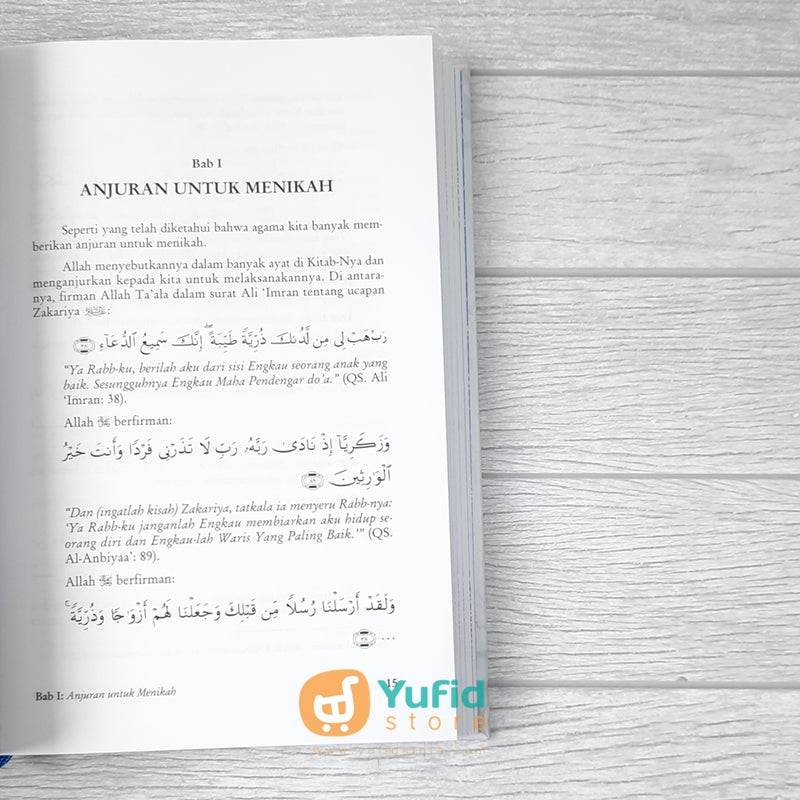 Bab I
ANJURAN UNTUK MENIKAH
Seperti yang telah diketahui bahwa agama kita banyak mem-
berikan anjuran untuk menikah.
Allah menyebutkannya dalam banyak ayat di Kitab-Nya dan
menganjurkan kepada kita untuk melaksanakannya. Di antara-
nya, firman Allah Ta’ala dalam surat Ali ‘Imran tentang ucapan
Zakariya :
رَبِّ هَبْ لِى مِن لَّدُنكَ ذُرِّيَّةً طَيِّبَةً ۖ إِنَّكَ سَمِيعُ ٱلدُّعَآءِ ٣٨
“Ya Rabb-ku, berilah aku dari sisi Engkau seorang anak yang
baik. Sesungguhnya Engkau Maha Pendengar do’a.” (QS. Ali
‘Imran: 38).
Allah ﷻ berfirman:
وَزَكَرِيَّآ إِذْ نَادَىٰ رَبَّهُۥ رَبِّ لَا تَذَرْنِى فَرْدًا وَأَنتَ خَيْرُ
ٱلْوَٰرِثِينَ ٨٩
“Dan (ingatlah kisah) Zakariya, tatkala ia menyeru Rabb-nya:
‘Ya Rabb-ku janganlah Engkau membiarkan aku hidup se-
orang diri dan Engkau-lah Waris Yang Paling Baik.’” (QS.
Al-Anbiyaa’: 89).
Allah ﷻ berfirman:
وَلَقَدْ أَرْسَلْنَا رُسُلًا مِّن قَبْلِكَ وَجَعَلْنَا لَهُمْ أَزْوَٰجًا وَذُرِّيَّةً ۚ
... ٣٨
Bab I: Anjuran untuk Menikah
15
Yufid
store